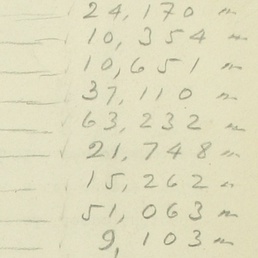 24,170 "
10,354 "
10,651 "
37,110 "
63,232 "
21,748 "
15,262 "
51,063 "
9,103 "